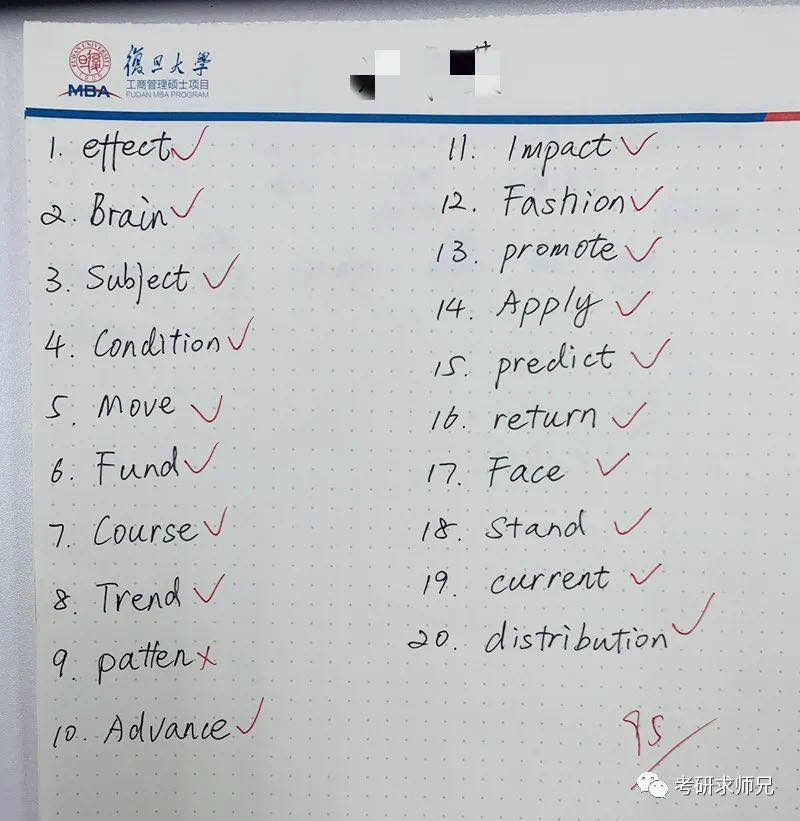 復旦大學
工商管理硕士项目
MBA FUDAN MBA PROGRAM
1. effect
2. Brain
3. Subject
4. Condition
5. Move
6. Fund
7. Course
8. Trend
9. patten
10. Advance
11. Impact
12. Fashion
13. promote
14. Apply
15. predict
16. return
17. Face
18. Stand
19. current
20. distribution
95
考研求师兄